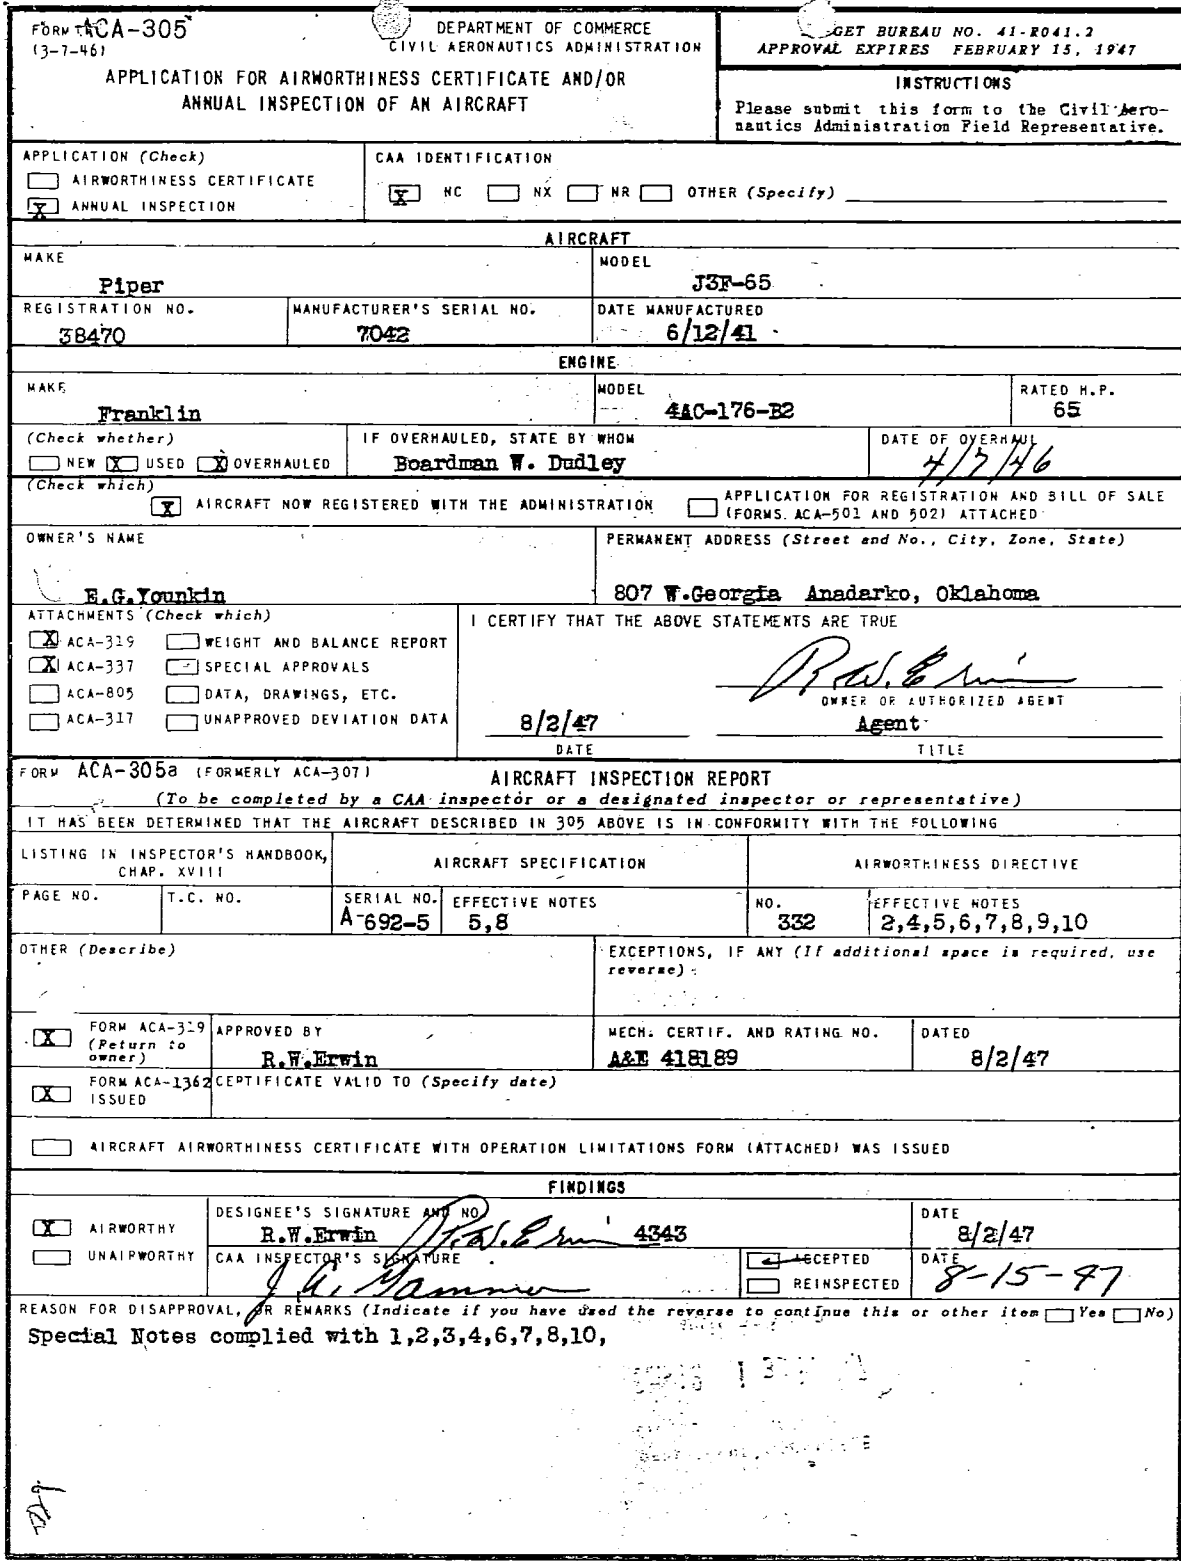 FORM ACA-305
(3-7-46)
DEPARTMENT OF COMMERCE
CIVIL AERONAUTICS ADMINISTRATION
APPLICATION FOR AIRWORTHINESS CERTIFICATE AND/OR
ANNUAL INSPECTION OF AN AIRCRAFT
GET BUREAU NO. 41-R041.2
APPROVAL EXPIRES FEBRUARY 15, 1947
INSTRUCTIONS
Please submit this form to the Civil Aero-
nautics Administration Field Representative.
APPLICATION (Check)
AIRWORTHINESS CERTIFICATE
X ANNUAL INSPECTION
CAA IDENTIFICATION
X NC NX NR OTHER (Specify)
AIRCRAFT
MAKE
Piper
MODEL
J3F-65
REGISTRATION NO.
38470
MANUFACTURER'S SERIAL NO.
7042
DATE MANUFACTURED
6/12/41
ENGINE
MAKE
Franklin
MODEL
4AC-176-B2
RATED H.P.
65
(Check whether)
NEW X USED X OVERHAULED
IF OVERHAULED, STATE BY WHOM
Boardman W. Dudley
DATE OF OVERHAUL
4/7/46
(Check which)
X AIRCRAFT NOW REGISTERED WITH THE ADMINISTRATION
APPLICATION FOR REGISTRATION AND BILL OF SALE
(FORMS ACA-501 AND 502) ATTACHED
OWNER'S NAME
E.G.Younkin
PERMANENT ADDRESS (Street and No., City, Zone, State)
807 W.Georgia Anadarko, Oklahoma
ATTACHMENTS (Check which)
X ACA-319 WEIGHT AND BALANCE REPORT
X ACA-337 SPECIAL APPROVALS
ACA-805 DATA, DRAWINGS, ETC.
ACA-317 UNAPPROVED DEVIATION DATA
I CERTIFY THAT THE ABOVE STATEMENTS ARE TRUE
R.W. Erwin
OWNER OR AUTHORIZED AGENT
8/2/47
DATE
Agent
TITLE
FORM ACA-305a (FORMERLY ACA-307)
AIRCRAFT INSPECTION REPORT
(To be completed by a CAA inspector or a designated inspector or representative)
IT HAS BEEN DETERMINED THAT THE AIRCRAFT DESCRIBED IN 305 ABOVE IS IN CONFORMITY WITH THE FOLLOWING
LISTING IN INSPECTOR'S HANDBOOK,
CHAP. XVIII
AIRCRAFT SPECIFICATION
AIRWORTHINESS DIRECTIVE
PAGE NO.
T.C. NO.
SERIAL NO.
A-692-5
EFFECTIVE NOTES
5,8
NO.
332
EFFECTIVE NOTES
2,4,5,6,7,8,9,10
OTHER (Describe)
EXCEPTIONS, IF ANY (If additional space is required, use
reverse)
X FORM ACA-319
(Return to
owner)
APPROVED BY
R.W.Erwin
MECH. CERTIF. AND RATING NO.
A&E 418189
DATED
8/2/47
X FORM ACA-1362
ISSUED
CERTIFICATE VALID TO (Specify date)
AIRCRAFT AIRWORTHINESS CERTIFICATE WITH OPERATION LIMITATIONS FORM (ATTACHED) WAS ISSUED
FINDINGS
X AIRWORTHY
UNAIRWORTHY
DESIGNEE'S SIGNATURE AND NO.
R.W.Erwin R.W. Erwin 4343
DATE
8/2/47
CAA INSPECTOR'S SIGNATURE
ACCEPTED
REINSPECTED
DATE
8-15-47
REASON FOR DISAPPROVAL, OR REMARKS (Indicate if you have used the reverse to continue this or other item Yes No)
Special Notes complied with 1,2,3,4,6,7,8,10,